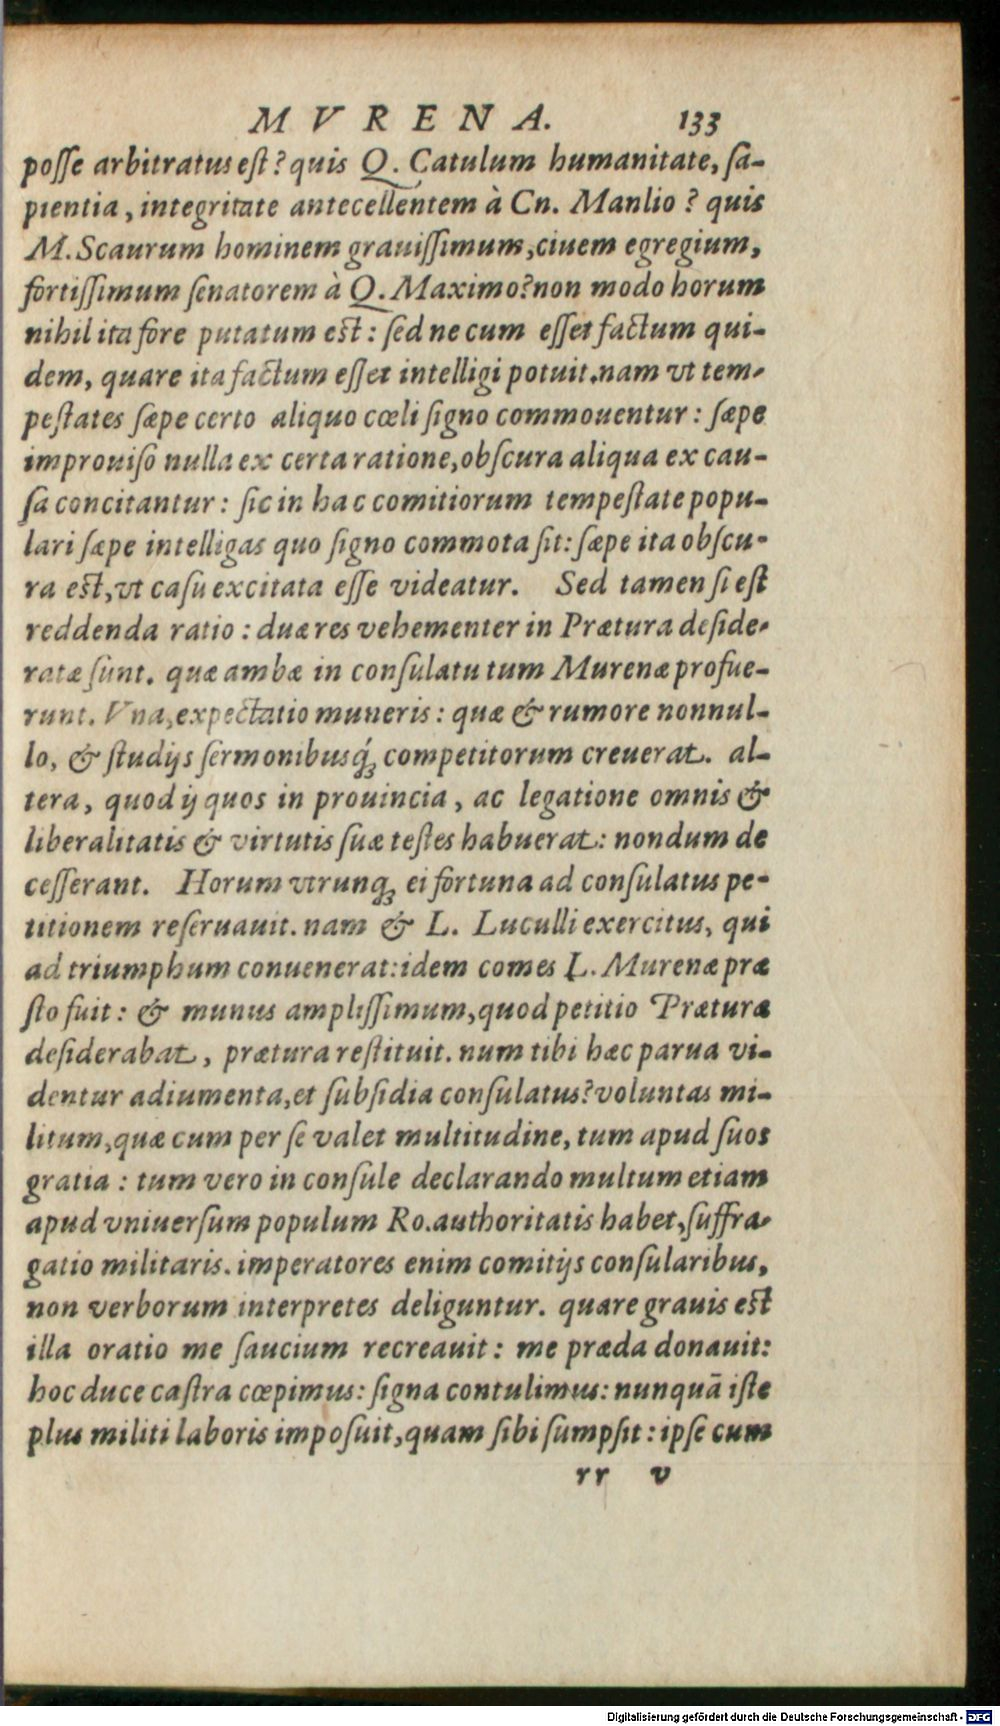 MVRENA. 133
posse arbitratus est? quis Q. Catulum humanitate, sa-
pientia, integritate antecellentem à Cn. Manlio? quis
M. Scaurum hominem grauissimum, ciuem egregium,
fortissimum senatorem à Q. Maximo? non modo horum
nihil ita fore putatum est: sed ne cum esset factum qui-
dem, quare ita factum esset intelligi potuit. nam vt tem-
pestates sæpe certo aliquo cœli signo commouentur: sæpe
improuiso nulla ex certa ratione, obscura aliqua ex cau-
sa concitantur: sic in hac comitiorum tempestate popu-
lari sæpe intelligas quo signo commota sit: sæpe ita obscu-
ra est, vt casu excitata esse videatur. Sed tamen si est
reddenda ratio: duæ res vehementer in Prætura deside-
ratæ sunt. quæ ambæ in consulatu tum Murenæ profue-
runt. Vna, expectatio muneris: quæ & rumore nonnul-
lo, & studijs sermonibusq́ꝫ competitorum creuerat. al-
tera, quod ij quos in prouincia, ac legatione omnis &
liberalitatis & virtutis suæ testes habuerat: nondum de
cesserant. Horum vtrunqꝫ ei fortuna ad consulatus pe-
titionem reseruauit. nam & L. Luculli exercitus, qui
ad triumphum conuenerat: idem comes L. Murenæ præ
sto fuit: & munus amplissimum, quod petitio Præturæ
desiderabat, prætura restituit. num tibi hæc parua vi-
dentur adiumenta, et subsidia consulatus? voluntas mi-
litum, quæ cum per se valet multitudine, tum apud suos
gratia: tum vero in consule declarando multum etiam
apud vniuersum populum Ro. authoritatis habet, suffra-
gatio militaris. imperatores enim comitijs consularibus,
non verborum interpretes deliguntur. quare grauis est
illa oratio me saucium recreauit: me præda donauit:
hoc duce castra cœpimus: signa contulimus: nunquā iste
plus militi laboris imposuit, quam sibi sumpsit: ipse cum
rr v
Digitalisierung gefördert durch die Deutsche Forschungsgemeinschaft - DFG